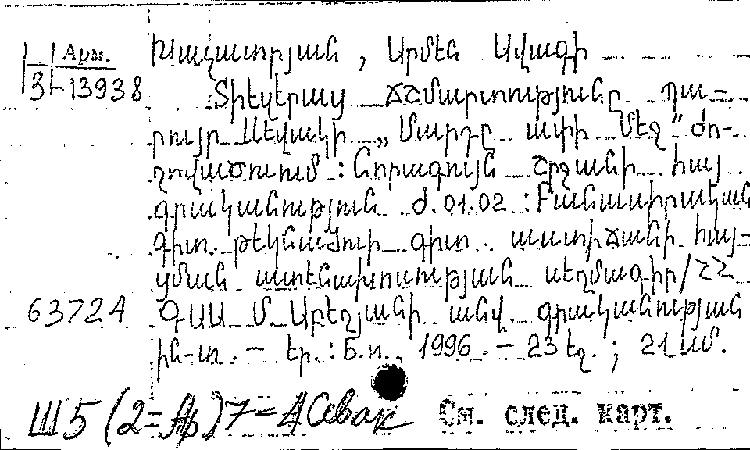 Արմ.
3-13938
Խաչատրյան , Արմեն Ավագի
Տիեզերապ ճշմարտությունը Պա-
րույր Սևակի „Մարդը ափի մեջ" ժո-
ղովածուում : Նորագույն շրջանի հայ
գրականություն Ժ.01.02 : Բանասիրական
գիտ. թեկնածուի գիտ. աստիճանի հայ-
ցման ատենախոսության սեղմագիր/ՀՀ
63724 ԳԱԱ Մ. Աբեղյանի անվ. գրականության
ին-տ. - Եր. : Б.и. 1996. - 23 էջ. ; 21 սմ.
Ш5(2=Ар)7-4Севак См. след. карт.